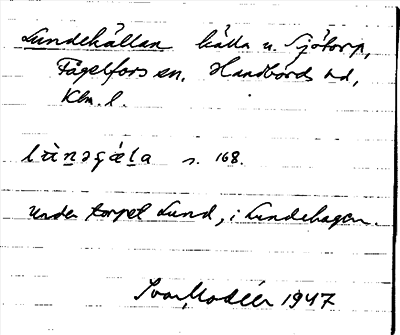 Lundekällan källa u. Sjötorp,
Fågelfors sn. Handbörds hd,
Klm. l.
s. 168.
under torpet Lund, i Lundehagen.
Ivar Modéer 1947